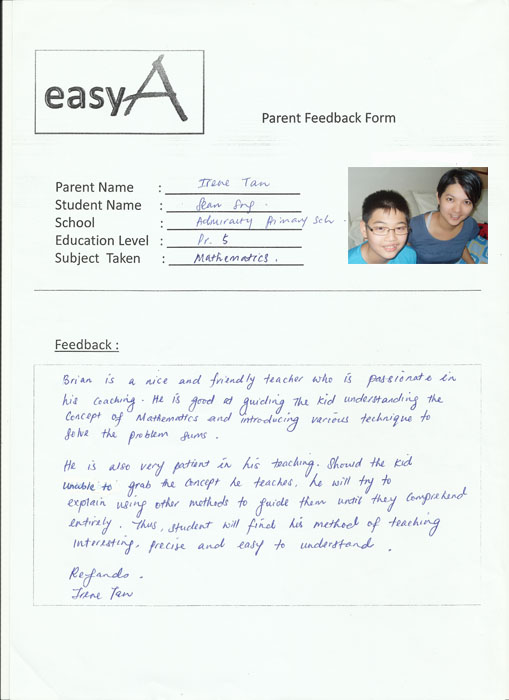 easyA
Parent Feedback Form
Parent Name : Irene Tan
Student Name : Sean Sng.
School : Admiralty Primary Sch.
Education Level : Pr. 5
Subject Taken : Mathematics.
Feedback :
Brian is a nice and friendly teacher who is passionate in
his coaching. He is good at guiding the kid understanding the
concept of Mathematics and introducing various technique to
solve the problem sums.
He is also very patient in his teaching. Should the kid
unable to grab the concept he teaches, he will try to
explain using other methods to guide them until they comprehend
entirely. Thus, student will find his method of teaching
interesting, precise and easy to understand.
Regards.
Irene Tan